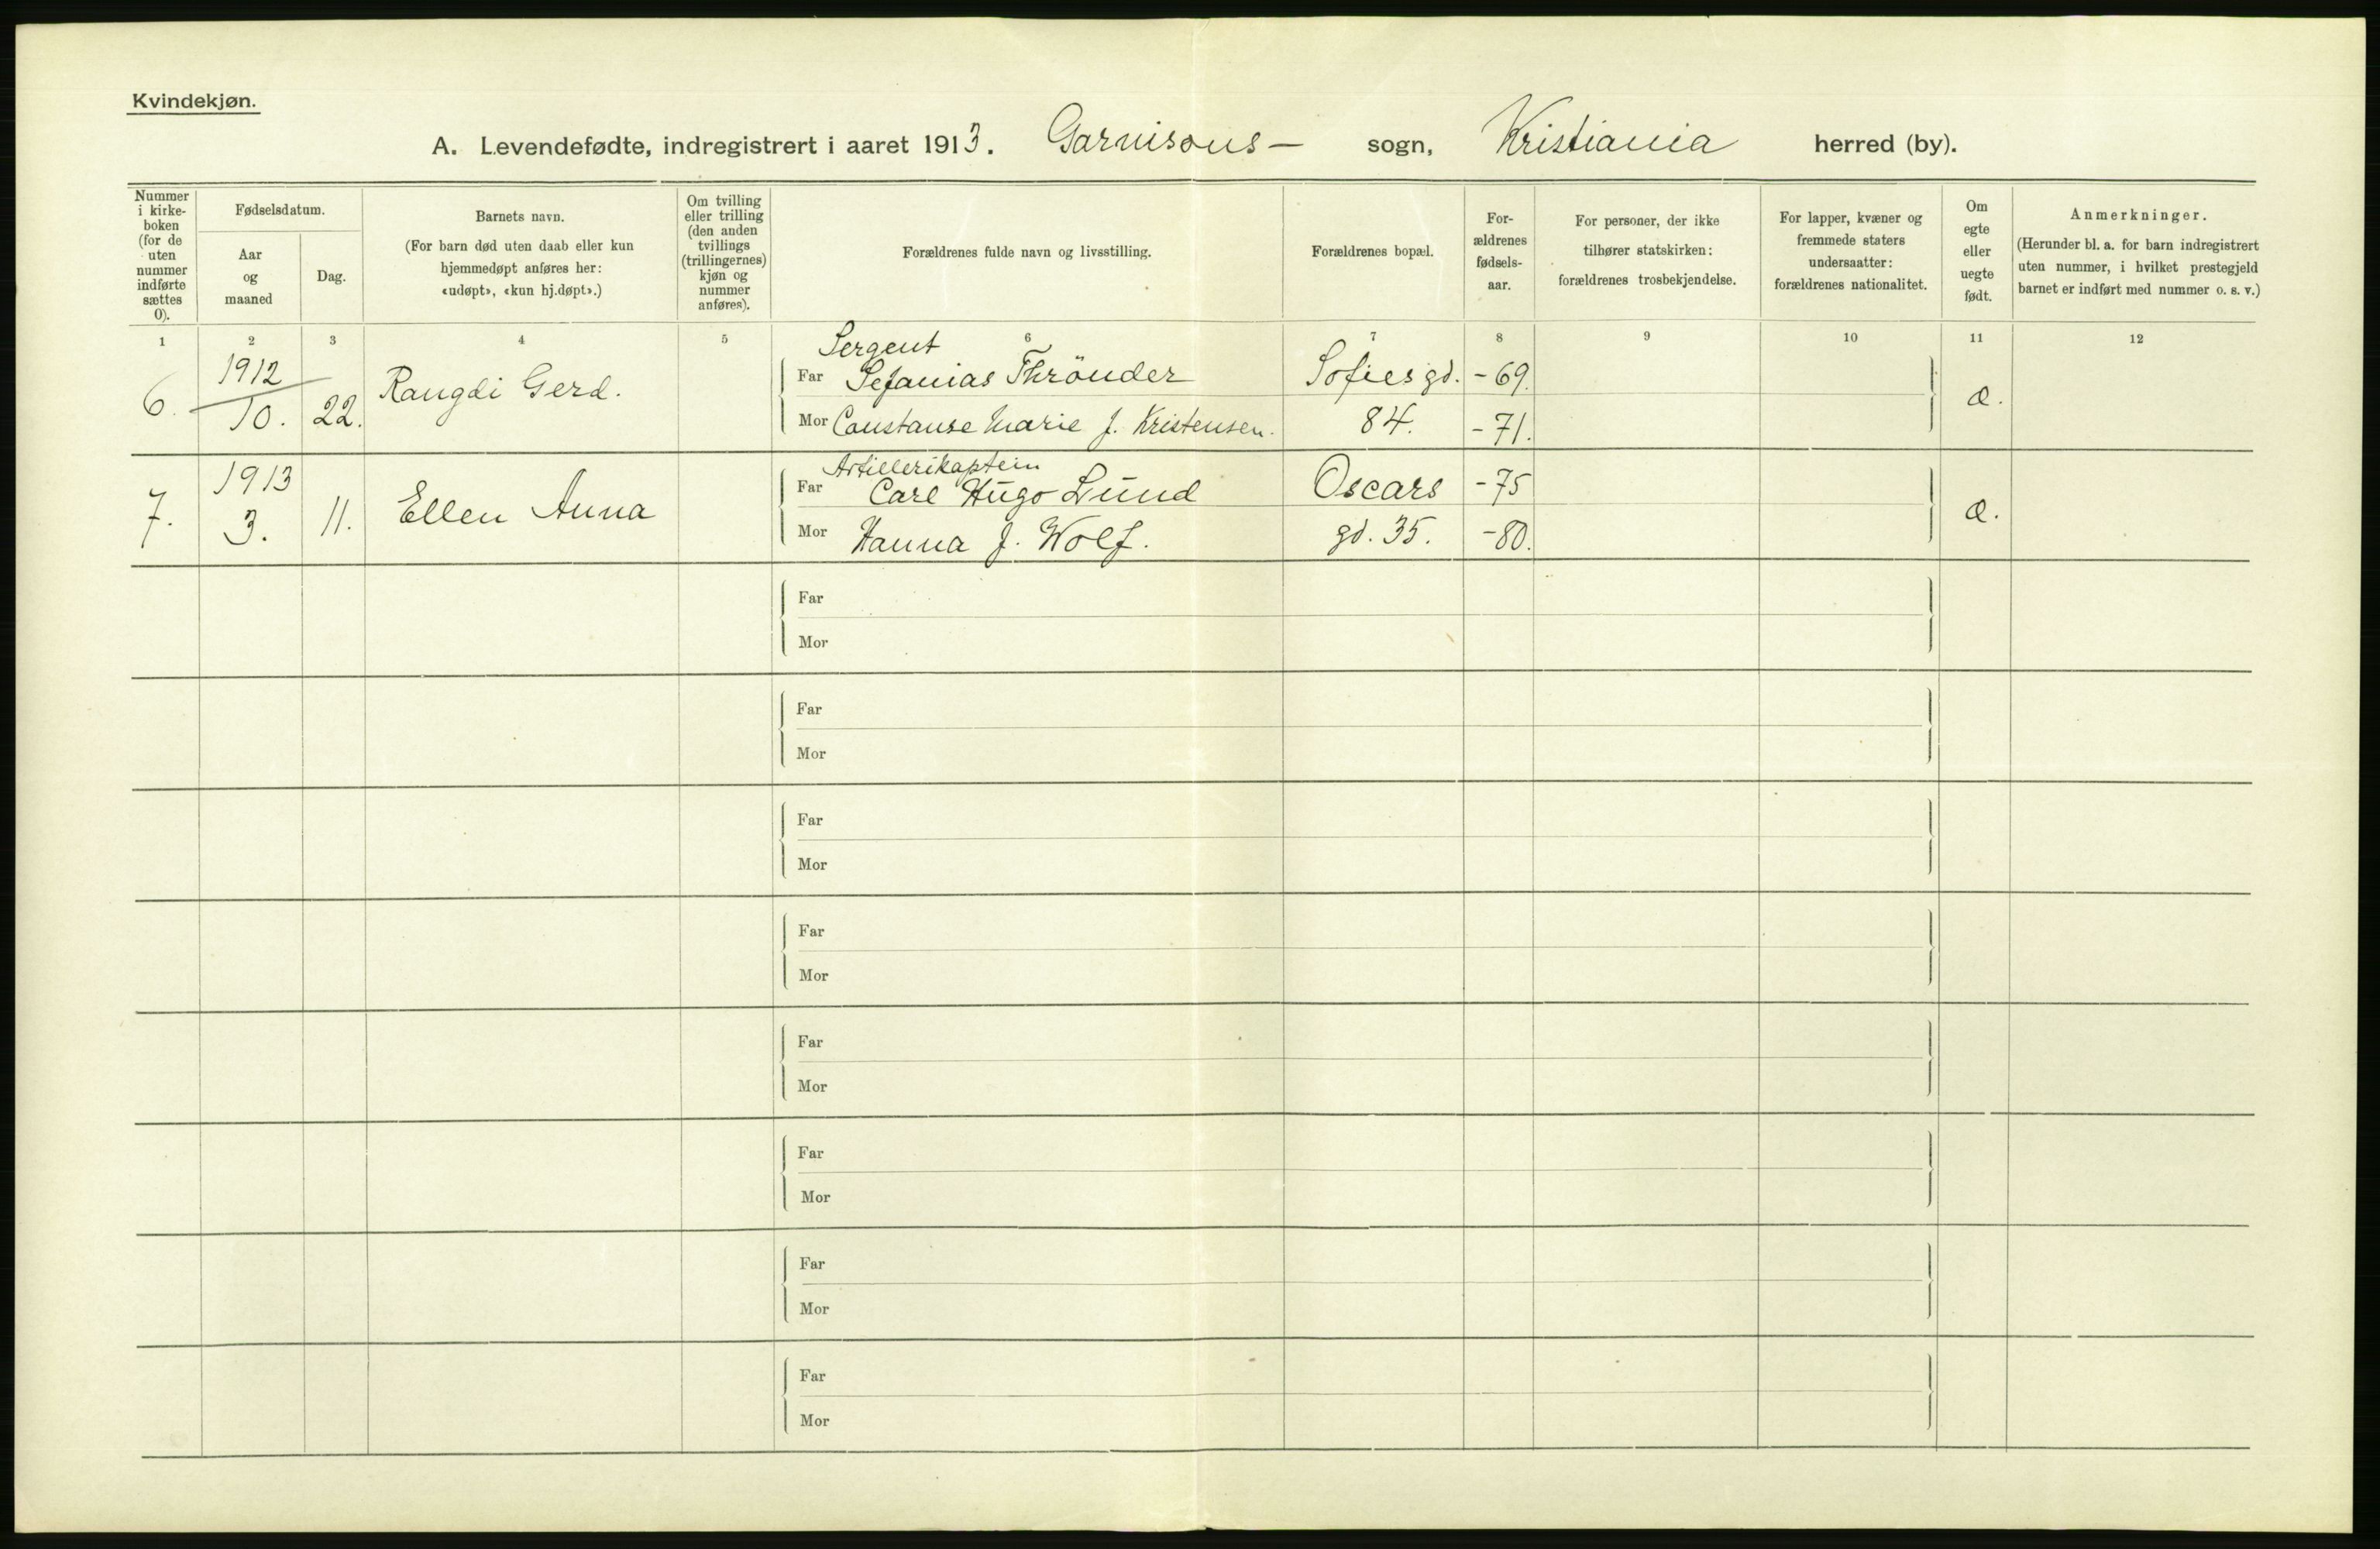 Kvindekjøn.
A. Levendefødte, indregistrert i aaret 1913. Garnisons- sogn, Kristiania herred (by).
Nummer i kirke- boken (for de uten nummer indførte sættes 0).
Fødselsdatum.
Aar og maaned
Dag.
Barnets navn.
(For barn død uten daab eller kun hjemmedøpt anføres her: «udøpt», «kun hj.døpt».)
Om tvilling eller trilling (den anden tvillings (trillingernes) kjøn og nummer anføres).
Forældrenes fulde navn og livsstilling.
Forældrenes bopæl.
For- ældrenes fødsels- aar.
For personer, der ikke tilhører statskirken: forældrenes trosbekjendelse.
For lapper, kvæner og fremmede staters undersaatter: forældrenes nationalitet.
Om egte eller uegte født.
Anmerkninger.
(Herunder bl. a. for barn indregistrert uten nummer, i hvilket prestegjeld barnet er indført med nummer o. s. v.)
1 2 3 4 5 6 7 8 9 10 11 12
6. 1912 10. 22. Rangdi Gerd.
Sergent
Far Sefanias Thrönder Sofies gd. - 69.
Mor Constanse Marie f. Kristensen. 84. - 71.
æ.
7. 1913 3. 11. Ellen Anna
Artillerikaptein
Far Carl Hugo Lund Oscars - 75
Mor Hanna f. Wolf. gd. 35. - 80.
æ.
Far
Mor
Far
Mor
Far
Mor
Far
Mor
Far
Mor
Far
Mor
Far
Mor
Far
Mor